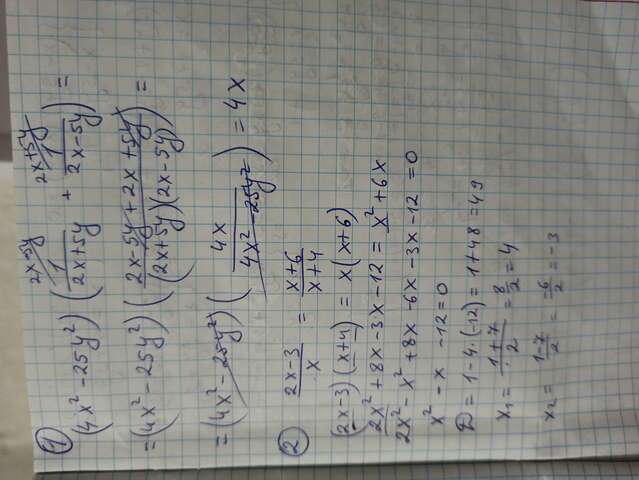 1
2x-5y 2x+5y
(4x² - 25y²) (1/(2x+5y) + 1/(2x-5y)) =
= (4x² - 25y²) ((2x-5y+2x+5y)/((2x+5y)(2x-5y))) =
= (4x² - 25y²) (4x/(4x² - 25y²)) = 4x
2
(2x-3)/x = (x+6)/(x+4)
(2x-3)(x+4) = x(x+6)
2x² + 8x - 3x - 12 = x² + 6x
2x² - x² + 8x - 6x - 3x - 12 = 0
x² - x - 12 = 0
D = 1 - 4·(-12) = 1 + 48 = 49
x₁ = (1+7)/2 = 8/2 = 4
x₂ = (1-7)/2 = -6/2 = -3